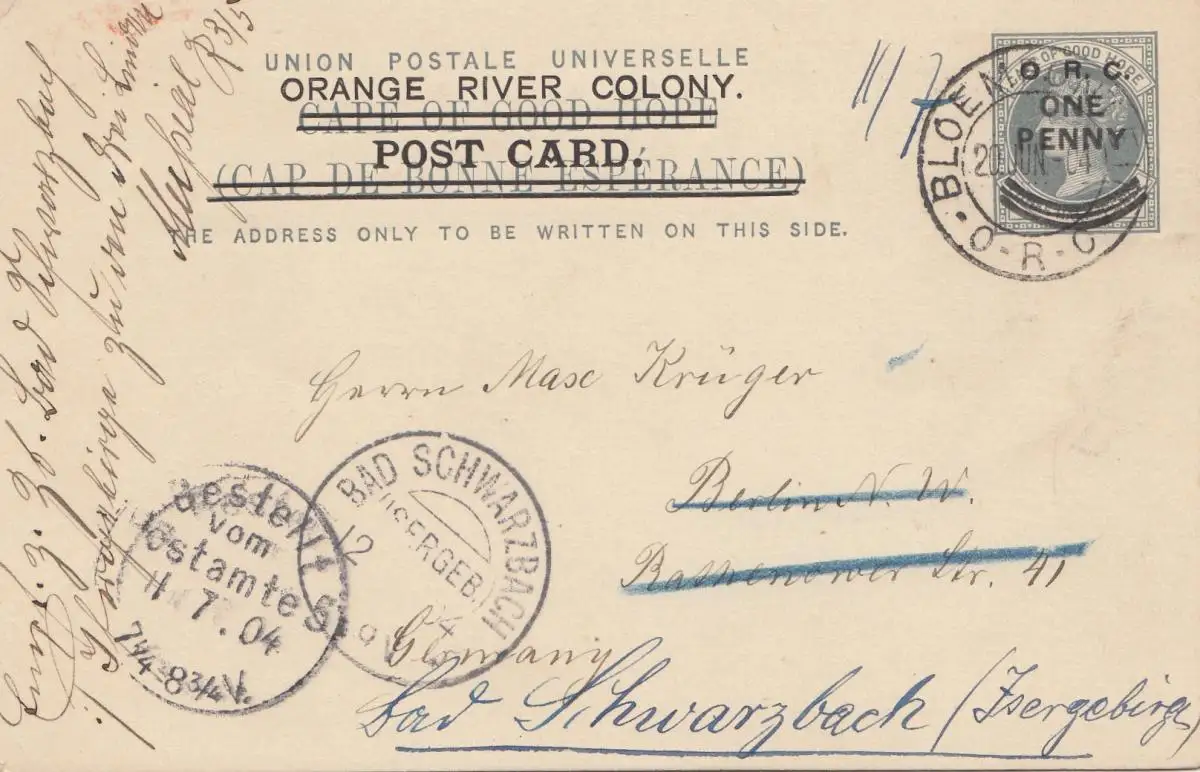 UNION POSTALE UNIVERSELLE
ORANGE RIVER COLONY.
CAPE OF GOOD HOPE
POST CARD.
(CAP DE BONNE ESPÉRANCE)
THE ADDRESS ONLY TO BE WRITTEN ON THIS SIDE.
11/7
CAPE OF GOOD HOPE
O. R. C.
ONE
PENNY
BLOEM
20 JUN 04
O-R-C
Herrn Max Krüger
Berlin N. W.
Rathenower Str. 41
Germany
Bad Schwarzbach (Isergebirge)
BAD SCHWARZBACH
(ISERGEB.)
12
Bestellt
vom
Postamte 5
11 7. 04
7¼-8¾V.
Empf. z. Zt. Bad Schwarzbach
Isergebirge
R 3/5